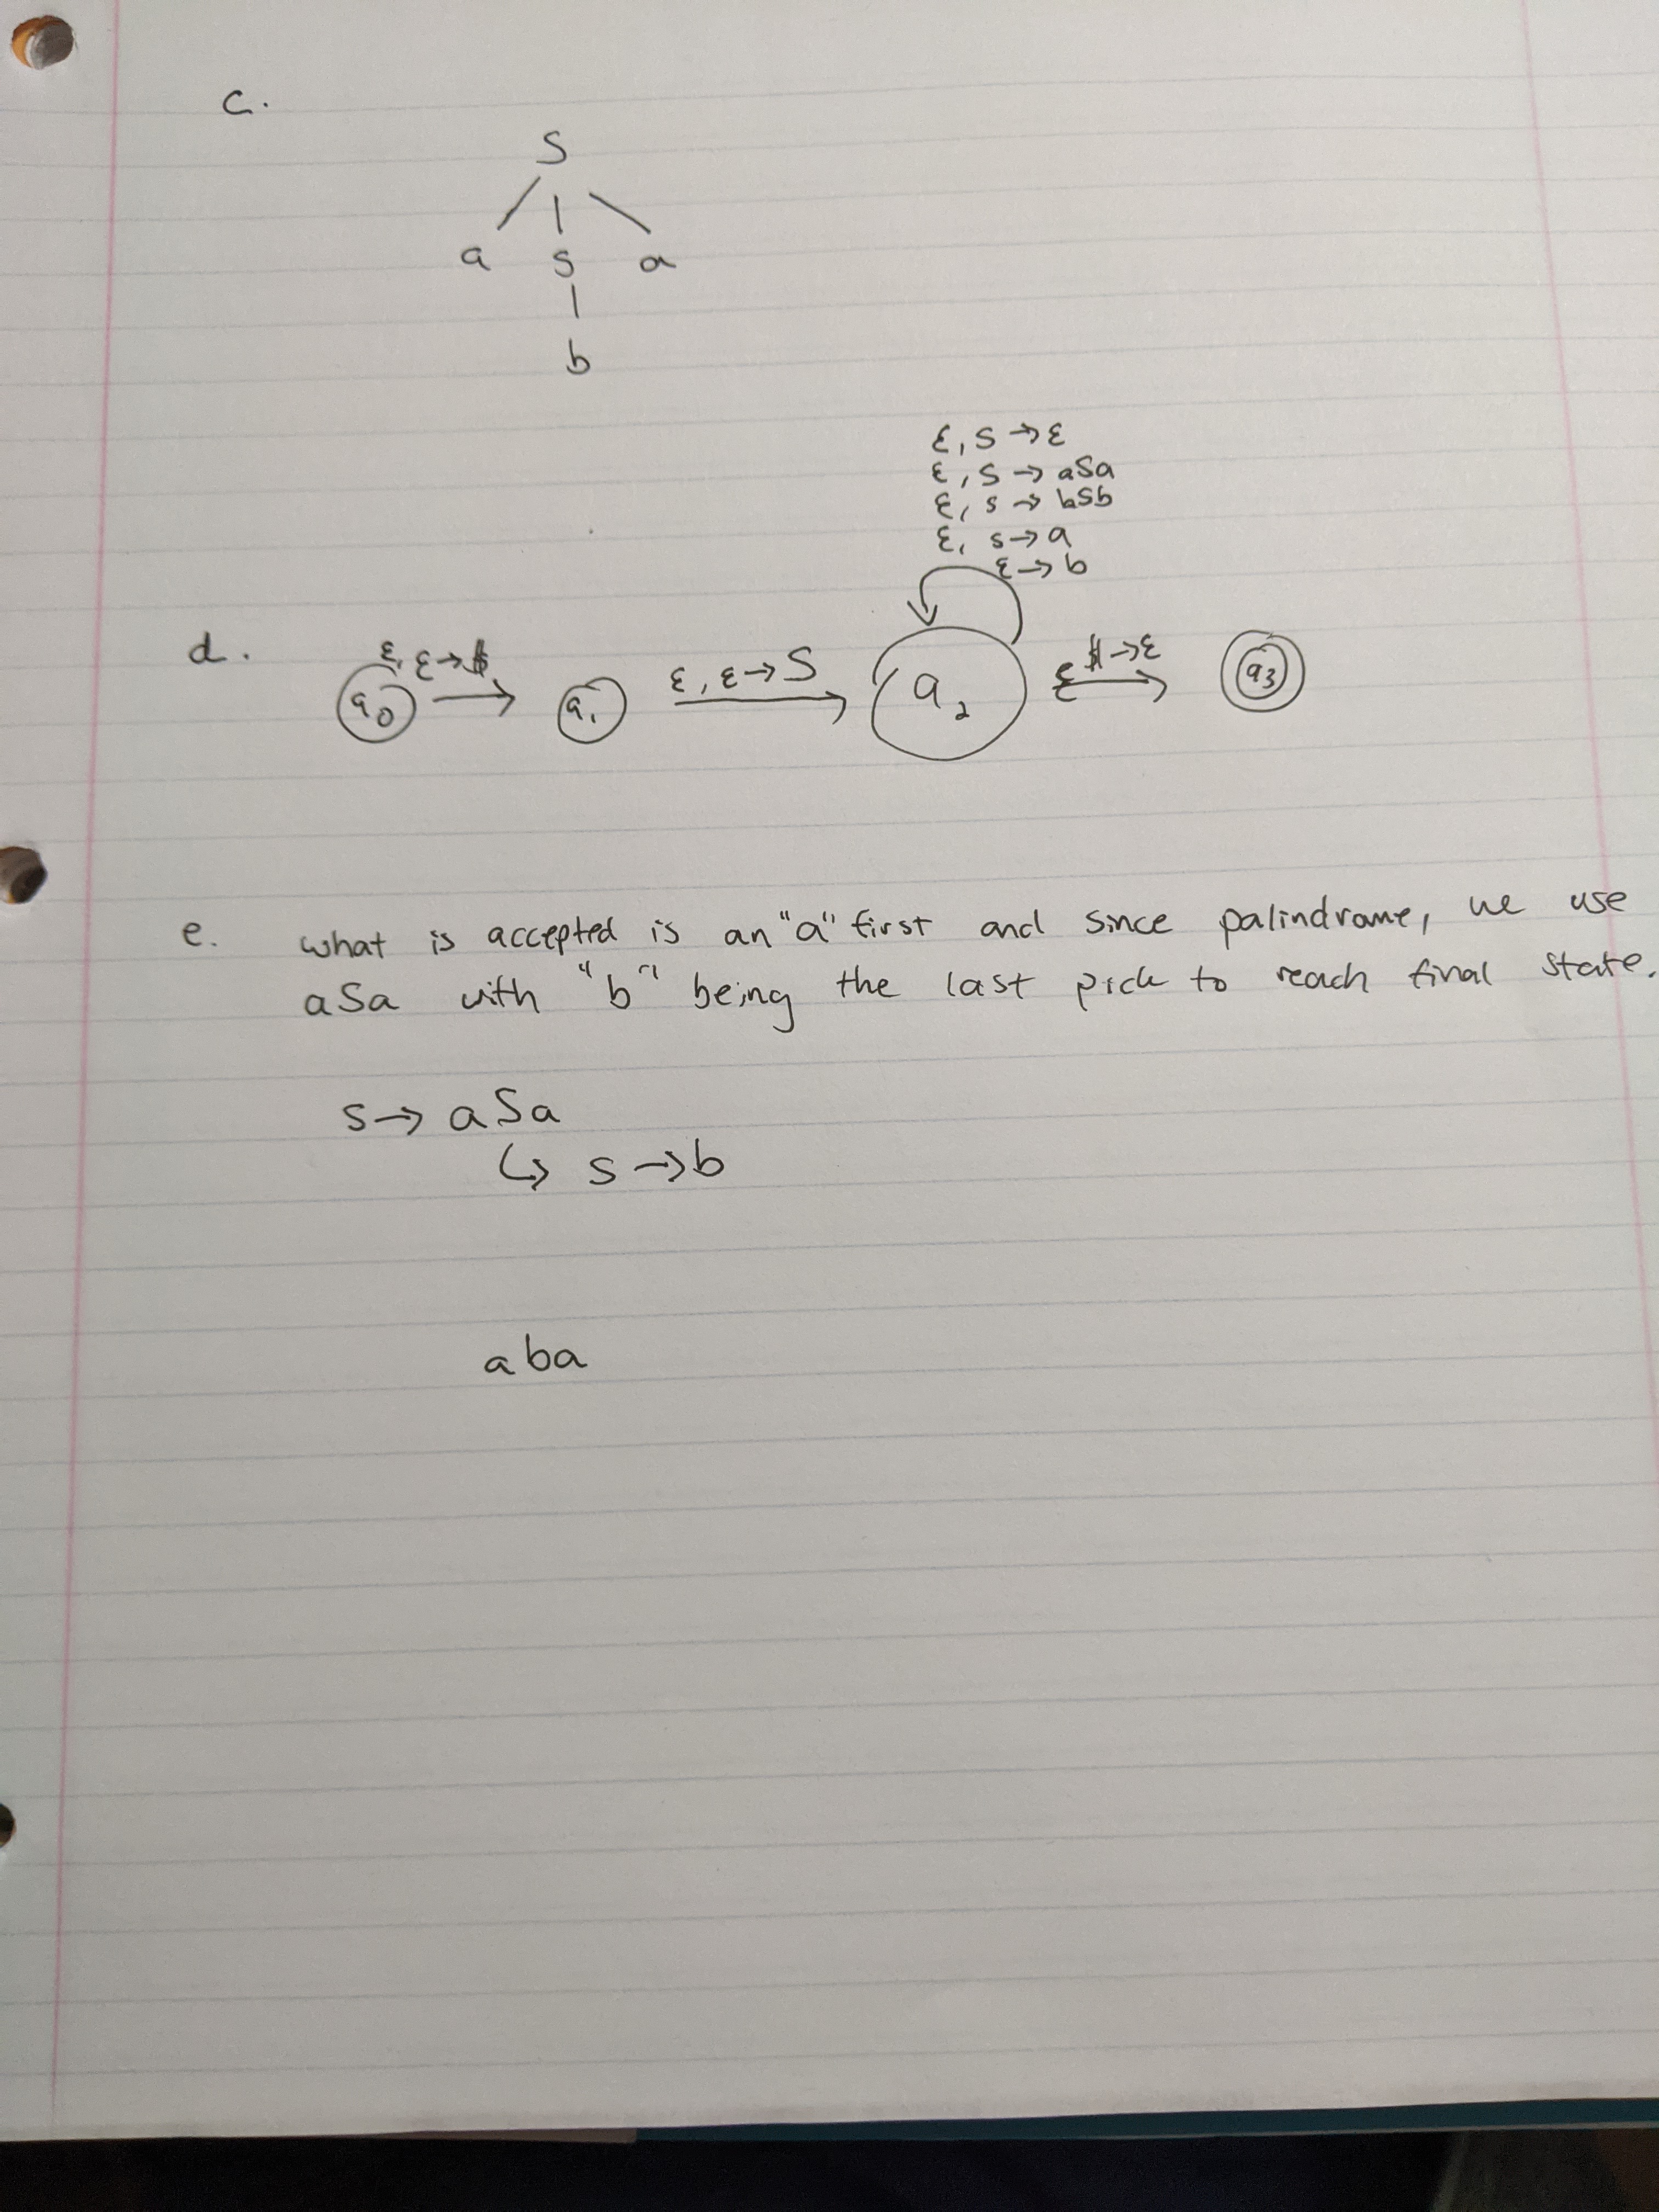 c.
S
a s a
b
ε, s → ε
ε, S → aSa
ε, s → bSb
ε, s → a
ε → b
d.
ε, ε → $
ε, ε → S
ε $ → ε
q0 q1 q2 q3
e. what is accepted is an "a" first and since palindrome, we use
aSa with "b" being the last pick to reach final state.
s → aSa
↳ s → b
aba